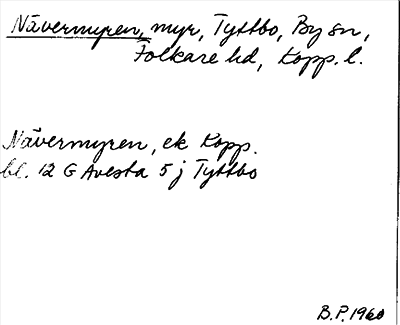 Nävermyren, myr, Tyttbo, By sn,
Folkare hd, Kopp. l.
Nävermyren, ek Kopp.
bl. 12 G Avesta 5 j Tyttbo
B.P. 1960